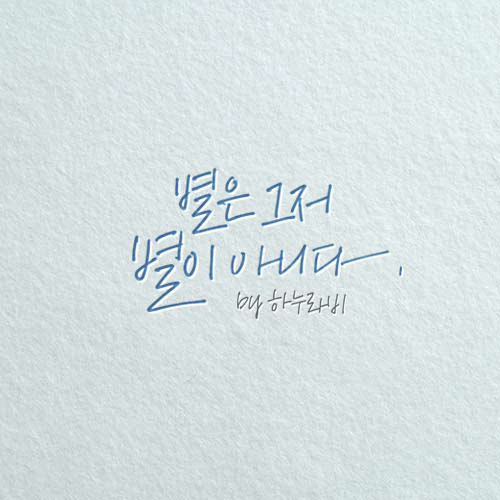 별은 그저
별이 아니다.
by 하누라비